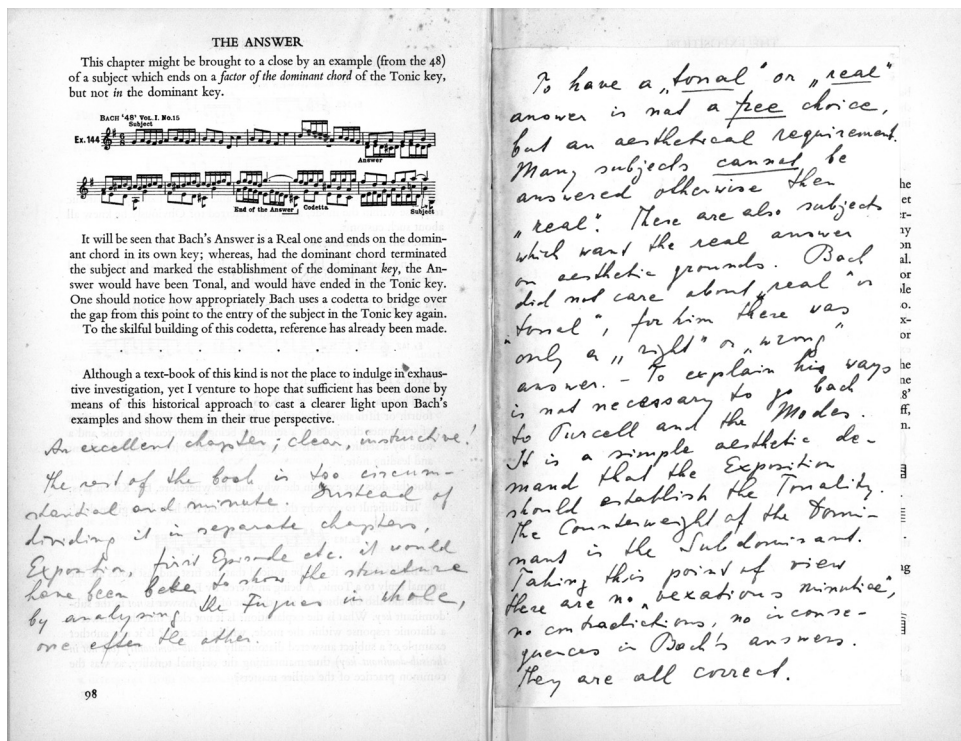 THE ANSWER
This chapter might be brought to a close by an example (from the 48)
of a subject which ends on a factor of the dominant chord of the Tonic key,
but not in the dominant key.
BACH '48' VOL. I. No.15
Subject
Ex. 144
Answer
End of the Answer
Codetta
Subject
It will be seen that Bach's Answer is a Real one and ends on the domin-
ant chord in its own key; whereas, had the dominant chord terminated
the subject and marked the establishment of the dominant key, the An-
swer would have been Tonal, and would have ended in the Tonic key.
One should notice how appropriately Bach uses a codetta to bridge over
the gap from this point to the entry of the subject in the Tonic key again.
To the skilful building of this codetta, reference has already been made.
Although a text-book of this kind is not the place to indulge in exhaus-
tive investigation, yet I venture to hope that sufficient has been done by
means of this historical approach to cast a clearer light upon Bach's
examples and show them in their true perspective.
An excellent chapter; clear, instructive!
The rest of the book is too circum-
stantial and minute. Instead of
dividing it in separate chapters,
Exposition, first Episode etc. it would
have been better to show the structure
by analysing the Fugues in whole,
one after the other.
98
To have a „tonal" or „real"
answer is not a free choice,
but an aesthetical requirement.
Many subjects cannot be
answered otherwise then
„real". There are also subjects
which want the real answer
on aesthetic grounds. Bach
did not care about „real" or
"tonal", for him there was
only a „right" or „wrong"
answer. – To explain his ways
is not necessary to go back
to Purcell and the Modes.
It is a simple aesthetic de-
mand that the Exposition
should establish the Tonality.
The Counterweight of the Domi-
nant is the Subdominant.
Taking this point of view
there are no „vexations minutiae",
no contradictions, no inconse-
quences in Bach's answers.
They are all correct.
he
et
er-
ny
on
al.
or
ole
o.
x-
or
he
ne
.8'
ff,
n.
ng